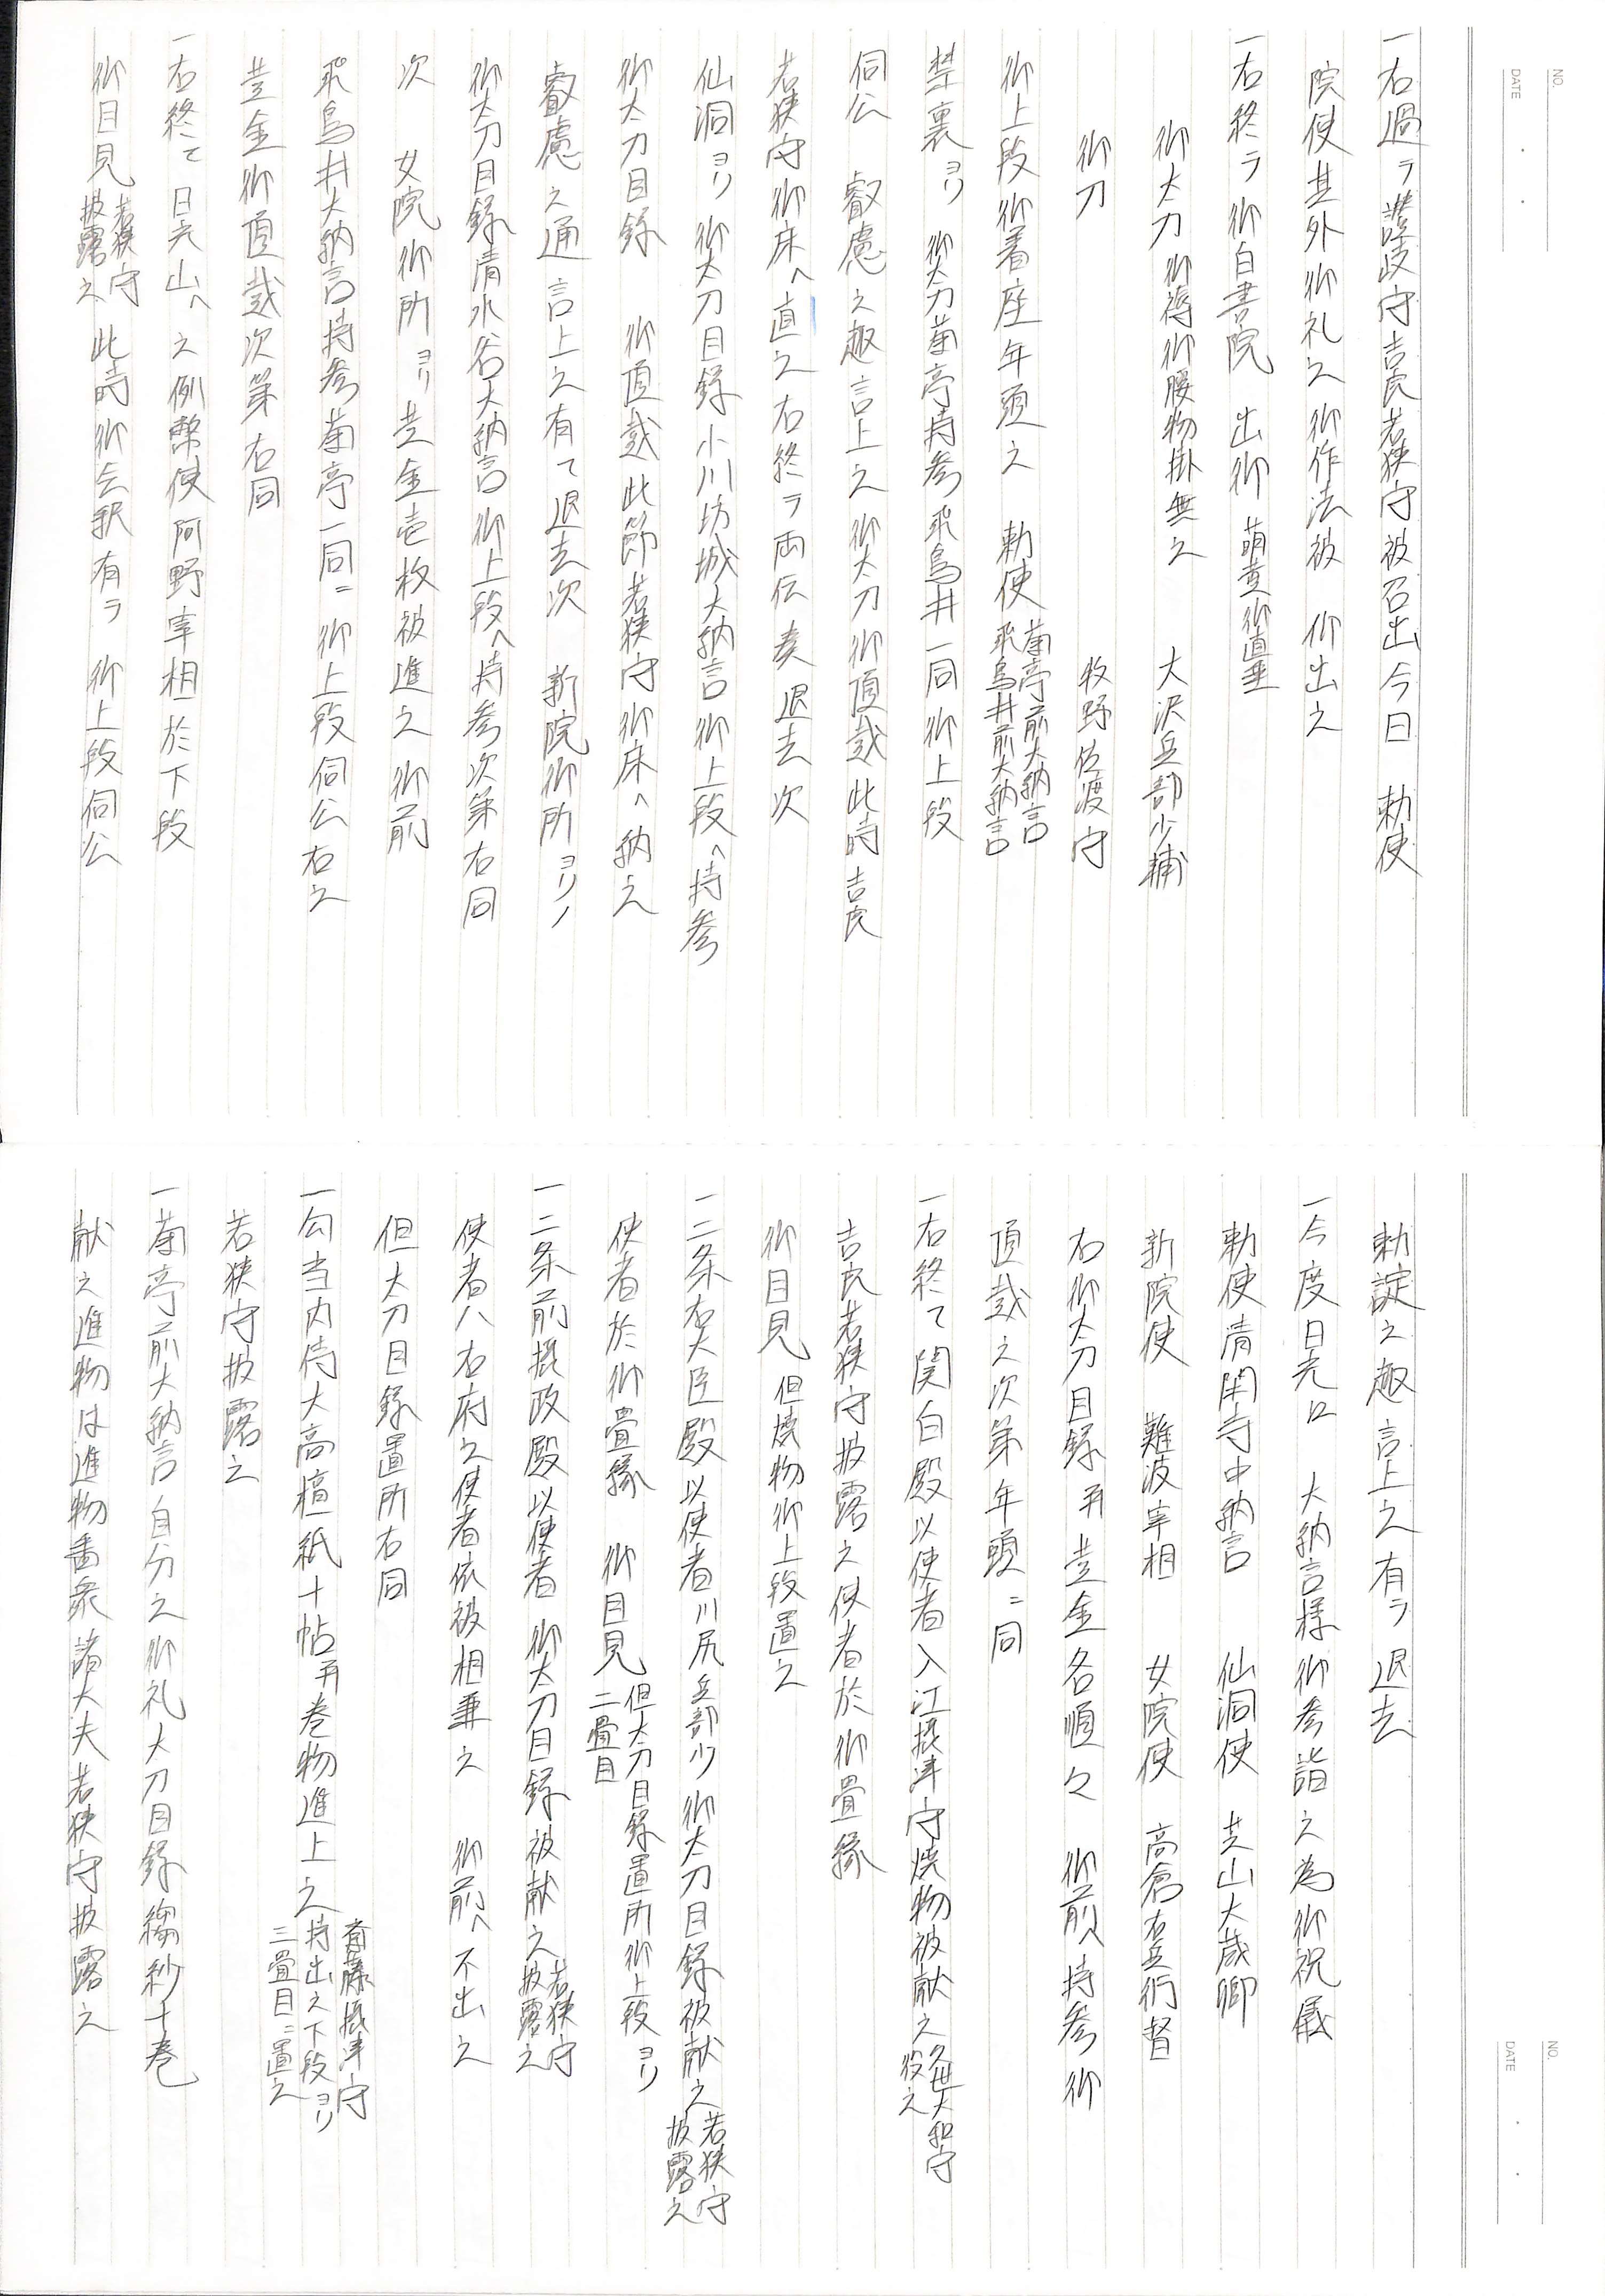 NO.
DATE
一右過ヲ讃岐守吉良若狭守被召出今日 勅使
院使其外御礼之御作法被 仰出之
一右終ヲ御白書院 出御 萌黄御直垂
御太刀 御褥御腰物掛無之 大沢兵部少輔
御刀 牧野佐渡守
御上段御着座年頭之 勅使 菊亭前大納言 飛鳥井前大納言
禁裏ヨリ 御太刀菊亭持参飛鳥井一同御上段
伺公 叡慮之趣言上之御太刀御頂戴此時吉良
若狭守御床へ直之右終ヲ両伝奏退去次
仙洞ヨリ 御太刀目録小川坊城大納言御上段へ持参
御太刀目録 御頂戴此節若狭守御床へ納之
叡慮之通言上之有て退去次 新院御所ヨリノ
御太刀目録清水谷大納言御上段へ持参次第右同
次 女院御所ヨリ黄金壱枚被進之御前
飛鳥井大納言持参菊亭一同ニ御上段伺公右之
黄金御頂戴次第右同
一右終て日光山へ之例幣使阿野宰相於下段
御目見 若狭守披露之 此時御会釈有ヲ 御上段伺公
NO.
DATE
勅諚之趣言上之有ヲ退去
一今度日光江 大納言様御参詣之為御祝儀
勅使清閑寺中納言 仙洞使 芝山大蔵卿
新院使 難波宰相 女院使 高倉右兵衛督
右御太刀目録并黄金各順々 御前へ持参御
頂戴之次第年頭ニ同
一右終て関白殿以使者入江摂津守焼物被献之 久世大和守 役之
吉良若狭守披露之使者於御畳縁
御目見 但焼物御上段置之
一二条右大臣殿以使者川尻兵部少御太刀目録被献之 若狭守 披露之
使者於御畳縁 御目見 但太刀目録置所御上段ヨリ 二畳目
一二条前摂政殿以使者 御太刀目録被献之 若狭守 披露之
使者ハ右府之使者依被相兼之 御前へ不出之
但太刀目録置所右同
一勾当内侍大高檀紙十帖并巻物進上之 斉藤摂津守 持出之下段ヨリ 三畳目ニ置之
若狭守披露之
一菊亭前大納言自分之御礼太刀目録縐紗十巻
献之進物は進物番衆諸大夫若狭守披露之